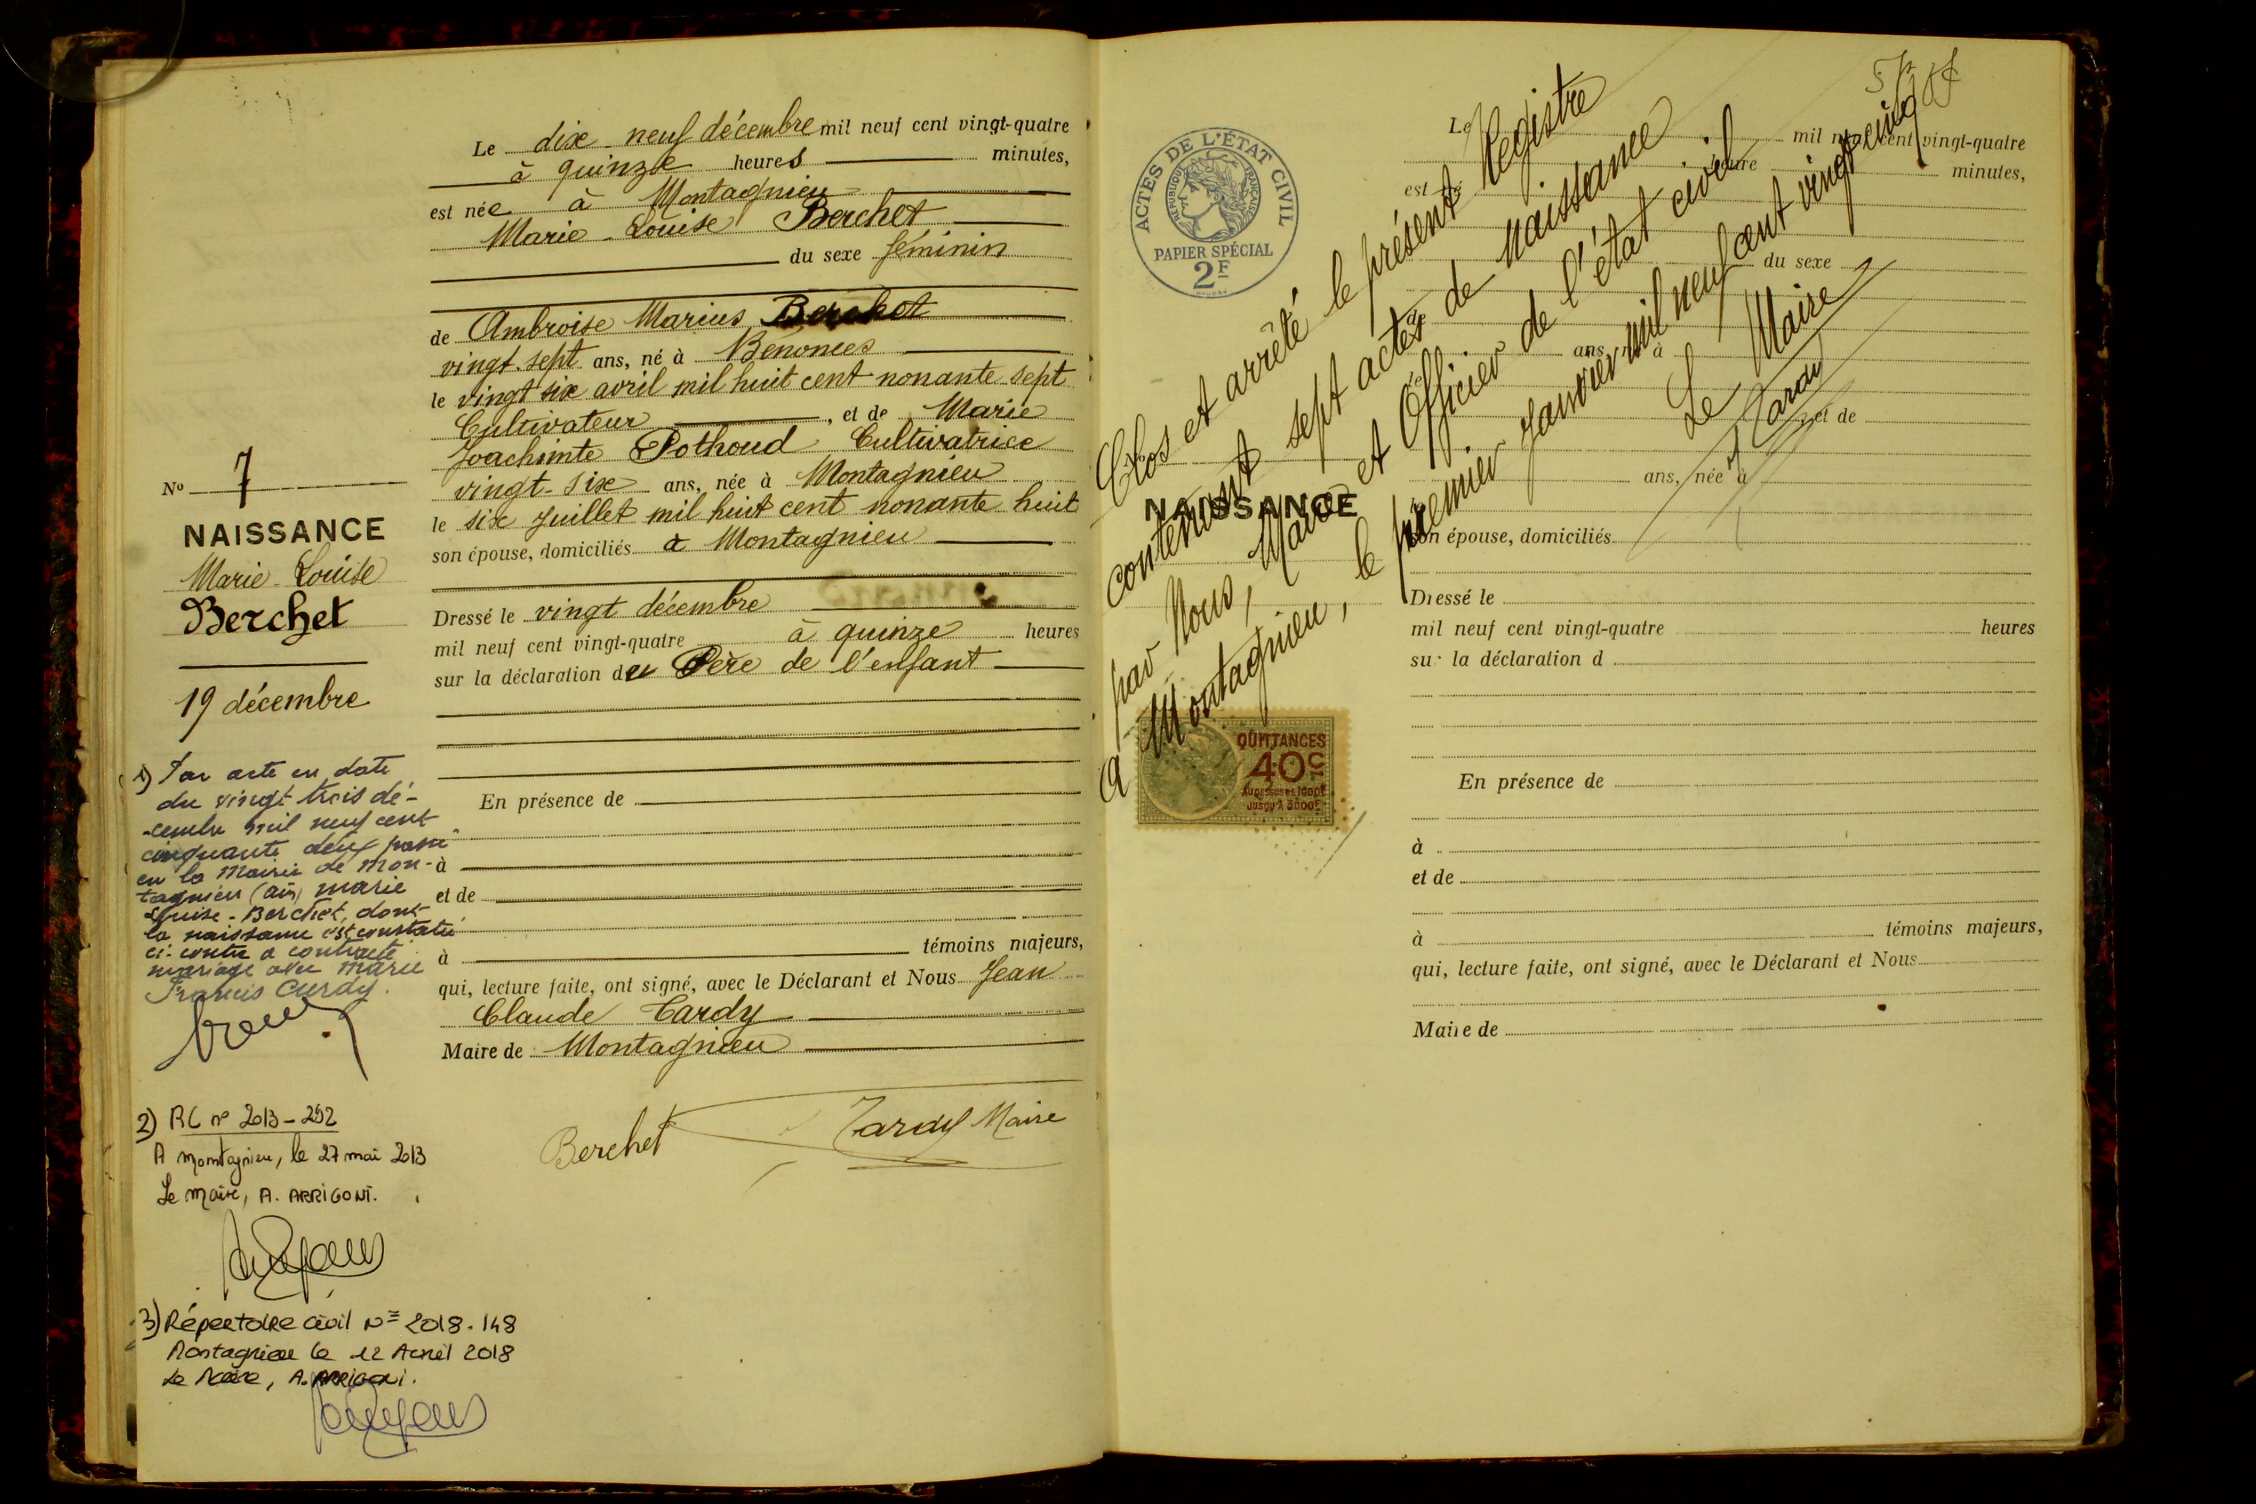 Le dix-neuf décembre mil neuf cent vingt-quatre
à quinze heures minutes,
est née à Montagnieu
Marie-Louise Berchet
du sexe féminin
de Ambroise Marius Berchet
vingt-sept ans, né à Bénonces
le vingt six avril mil huit cent nonante-sept
Cultivateur, et de Marie
Joachimte Pothoud Cultivatrice
vingt-six ans, née à Montagnieu
le six Juillet mil huit cent nonante-huit
son épouse, domiciliés à Montagnieu
Dressé le vingt décembre
mil neuf cent vingt-quatre à quinze heures
sur la déclaration du Père de l'enfant
En présence de
à
et de
à témoins majeurs,
qui, lecture faite, ont signé, avec le Déclarant et Nous Jean
Claude Tardy
Maire de Montagnieu
Berchet Tardy Maire
No 7
NAISSANCE
Marie-Louise
Berchet
19 décembre
1) Par acte en date
du vingt trois dé-
-cembre mil neuf cent
cinquante deux passé
en la Mairie de Mon-
tagnieu (Ain) Marie
Louise-Berchet, dont
la naissance est constatée
ci-contre a contracté
mariage avec Marie
Francis Curdy.
2) RC n° 2013-292
A Montagnieu, le 27 mai 2013
Le maire, A. ARRIGONI.
3) Répertoire civil N° 2018-148
Montagnieu le 12 Avril 2018
Le Maire, A. ARRIGONI.
ACTES DE L'ÉTAT CIVIL
RÉPUBLIQUE FRANÇAISE
PAPIER SPÉCIAL
2F
Clos et arrêté le présent Registre
contenant sept actes de Naissance
par Nous, Maire et Officier de l'état civil
à Montagnieu, le premier Janvier mil neuf cent vingt-cinq
Le Maire
Tardy
NAISSANCE
QUITTANCES
40c
Au-dessus de 1000F
Jusqu'à 3000F
Le mil neuf cent vingt-quatre
heure minutes,
est né
du sexe
de
ans, né à
le
et de
ans, née à
son épouse, domiciliés
Dressé le
mil neuf cent vingt-quatre heures
sur la déclaration d
En présence de
à
et de
à témoins majeurs,
qui, lecture faite, ont signé, avec le Déclarant et Nous
Maire de